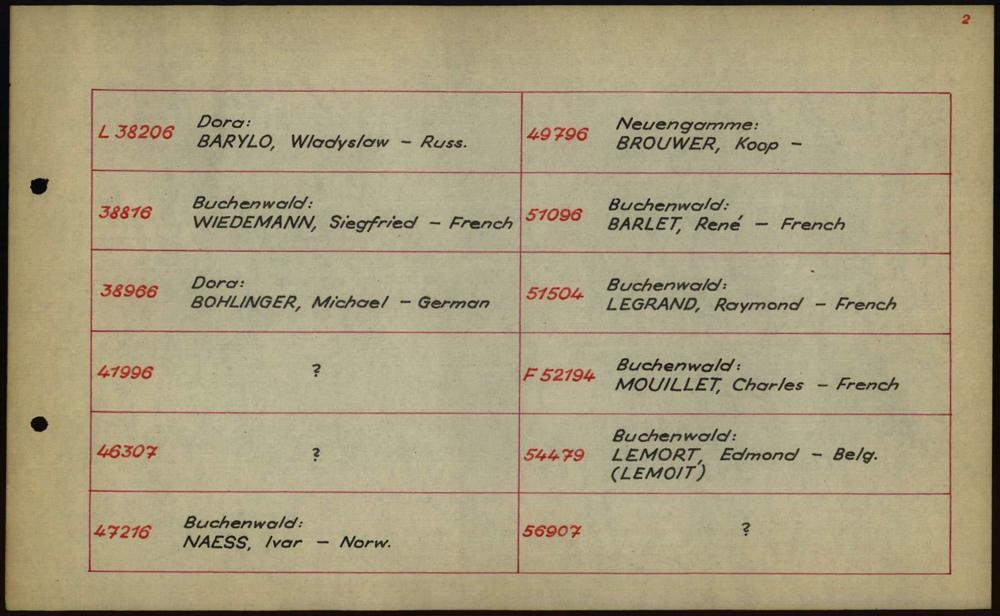 2
L 38206
Dora:
BARYLO, Wladyslaw – Russ.
38816
Buchenwald:
WIEDEMANN, Siegfried – French
38966
Dora:
BOHLINGER, Michael – German
41996
?
46307
?
47216
Buchenwald:
NAESS, Ivar – Norw.
49796
Neuengamme:
BROUWER, Koop –
51096
Buchenwald:
BARLET, René – French
51504
Buchenwald:
LEGRAND, Raymond – French
F 52194
Buchenwald:
MOUILLET, Charles – French
54479
Buchenwald:
LEMORT, Edmond – Belg.
(LEMOIT)
56907
?